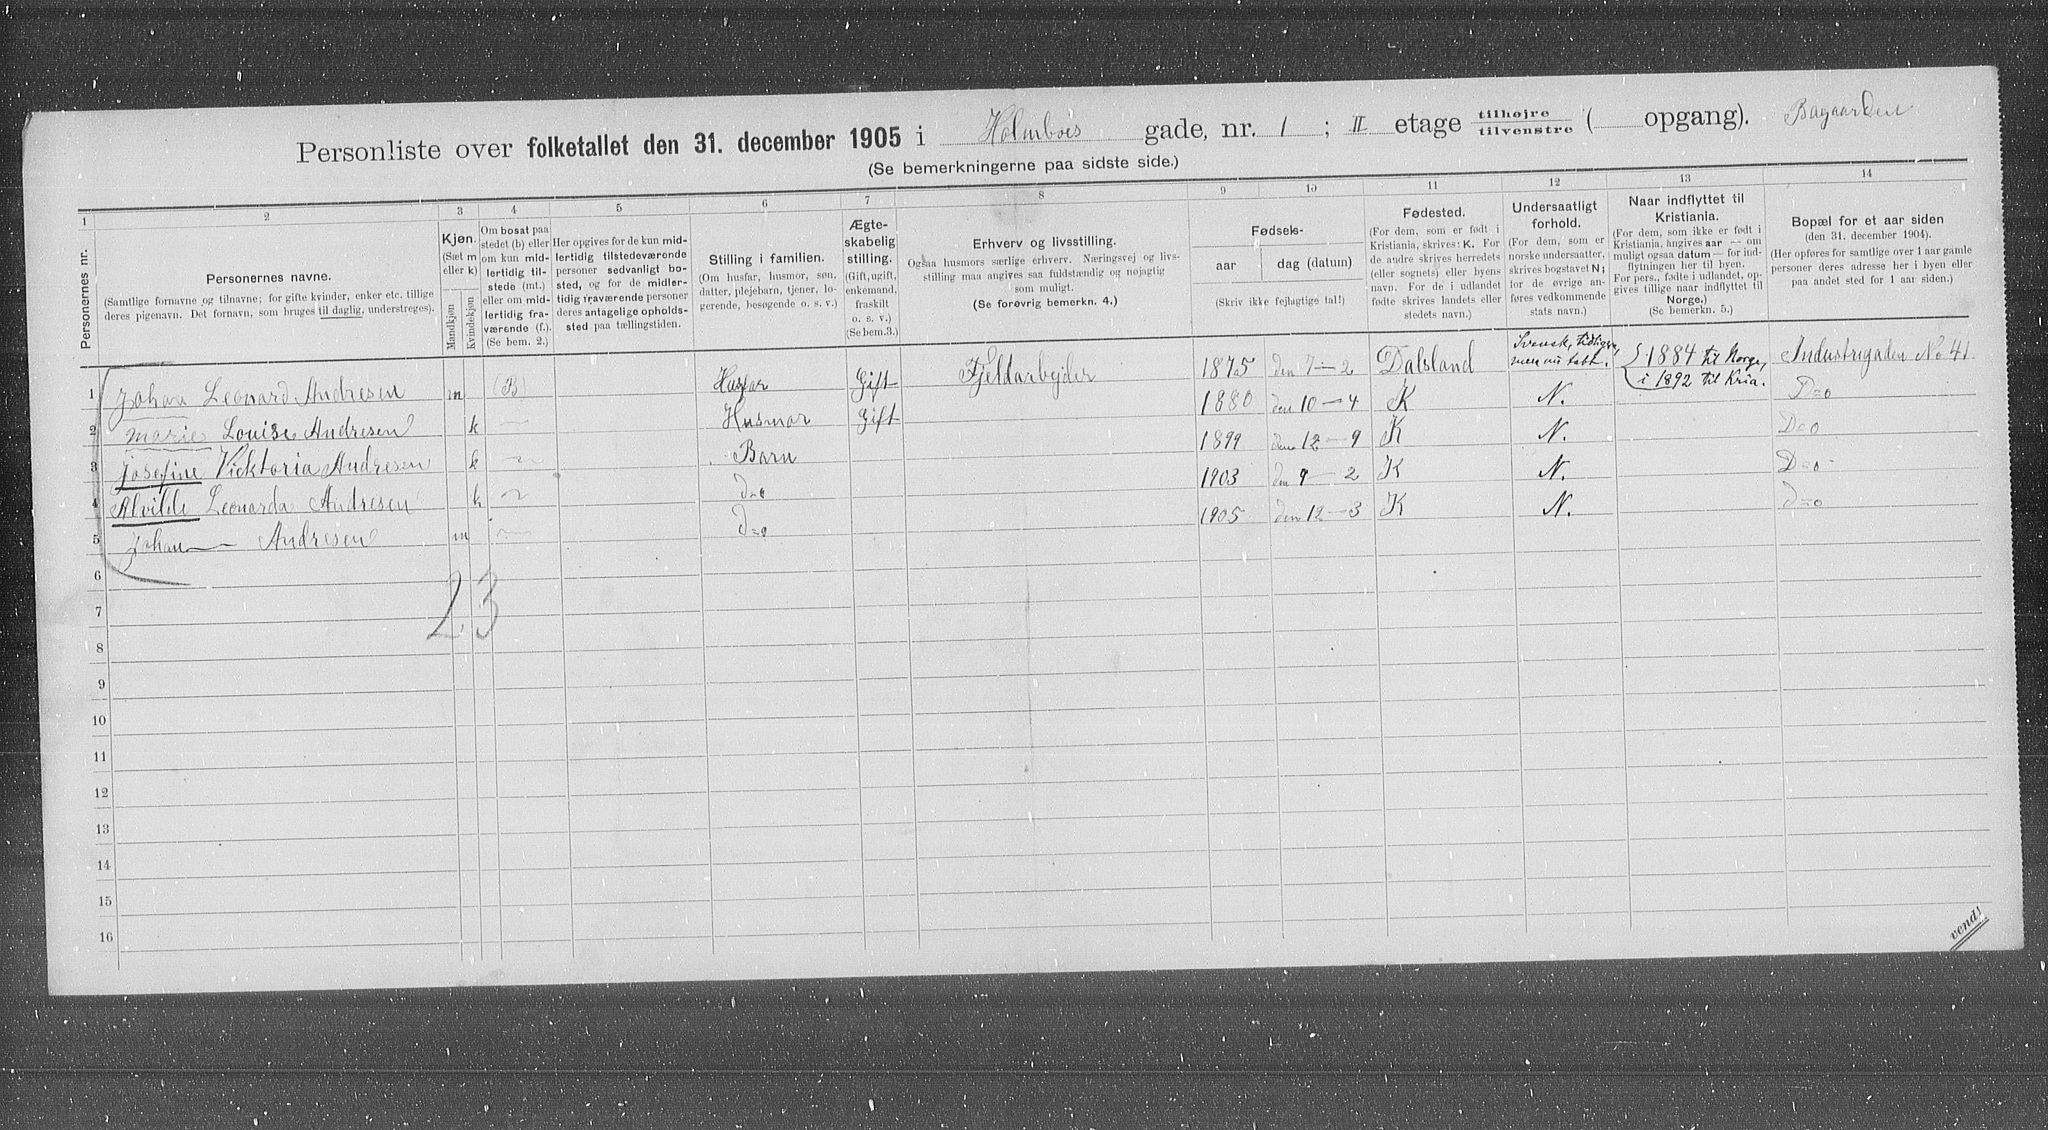 Personliste over folketallet den 31. december 1905 i Holmboes gade, nr. 1 ; II etage tilhøjre / tilvenstre ( opgang). Bagaarden
(Se bemerkningerne paa sidste side.)
1 2 3 4 5 6 7 8 9 10 11 12 13 14
Personernes nr.
Personernes navne.
(Samtlige fornavne og tilnavne; for gifte kvinder, enker etc. tillige
deres pigenavn. Det fornavn, som bruges til daglig, understreges).
Kjøn.
(Sæt m
eller k)
Mandkjøn
Kvindekjøn
Om bosat paa
stedet (b) eller
om kun mid-
lertidig til-
stede (mt.)
eller om mid-
lertidig fra-
værende (f.).
(Se bem. 2.)
Her opgives for de kun mid-
lertidig tilstedeværende
personer sedvanligt bo-
sted, og for de midler-
tidig fraværende personer
deres antagelige opholds-
sted paa tællingstiden.
Stilling i familien.
(Om husfar, husmor, søn,
datter, plejebarn, tjener, lo-
gerende, besøgende o. s. v.)
Ægte-
skabelig
stilling.
(Gift, ugift,
enkemand,
fraskilt
o. s. v.)
(Se bem.3.)
Erhverv og livsstilling.
Ogsaa husmors særlige erhverv. Næringsvej og livs-
stilling maa angives saa fuldstændig og nøjagtig
som muligt.
(Se forøvrig bemerkn. 4.)
Fødsels-
aar
dag (datum)
(Skriv ikke fejlagtige tal!)
Fødested.
(For dem, som er født i
Kristiania, skrives: K. For
de andre skrives herredets
(eller sognets) eller byens
navn. For de i udlandet
fødte skrives landets eller
stedets navn.)
Undersaatligt
forhold.
(For dem, som er
norske undersaatter,
skrives bogstavet N;
for de øvrige an-
føres vedkommende
stats navn.)
Naar indflyttet til
Kristiania.
(For dem, som ikke er født i
Kristiania, angives aar — om
muligt ogsaa datum — for ind-
flytningen her til byen.
For pers., fødte i udlandet, op-
gives tillige naar indflyttet til
Norge.)
(Se bemerkn. 5.)
Bopæl for et aar siden
(den 31. december 1904).
(Her opføres for samtlige over 1 aar gamle
personer deres adresse her i byen eller
paa andet sted for 1 aar siden.)
1 Johan Leonard Andresen m (B) Husfar Gift Fjeldarbejder 1875 den 7-2 Dalsland Svensk, tidligere, men nu tabt. { 1884 til Norge, i 1892 til Kria. Industrigaden No 41.
2 Marie Louise Andresen k — Husmor Gift 1880 den 10-4 K N. D=o
3 Josefine Vicktoria Andresen k — Barn 1899 den 12-9 K N. D=o
4 Alvilde Leonarda Andresen k — d=o 1903 den 9-2 K N. D=o
5 Johan — Andresen m — d=o 1905 den 12-3 K N. d=o
6
7 2.3
8
9
10
11
12
13
14
15
16
vend!